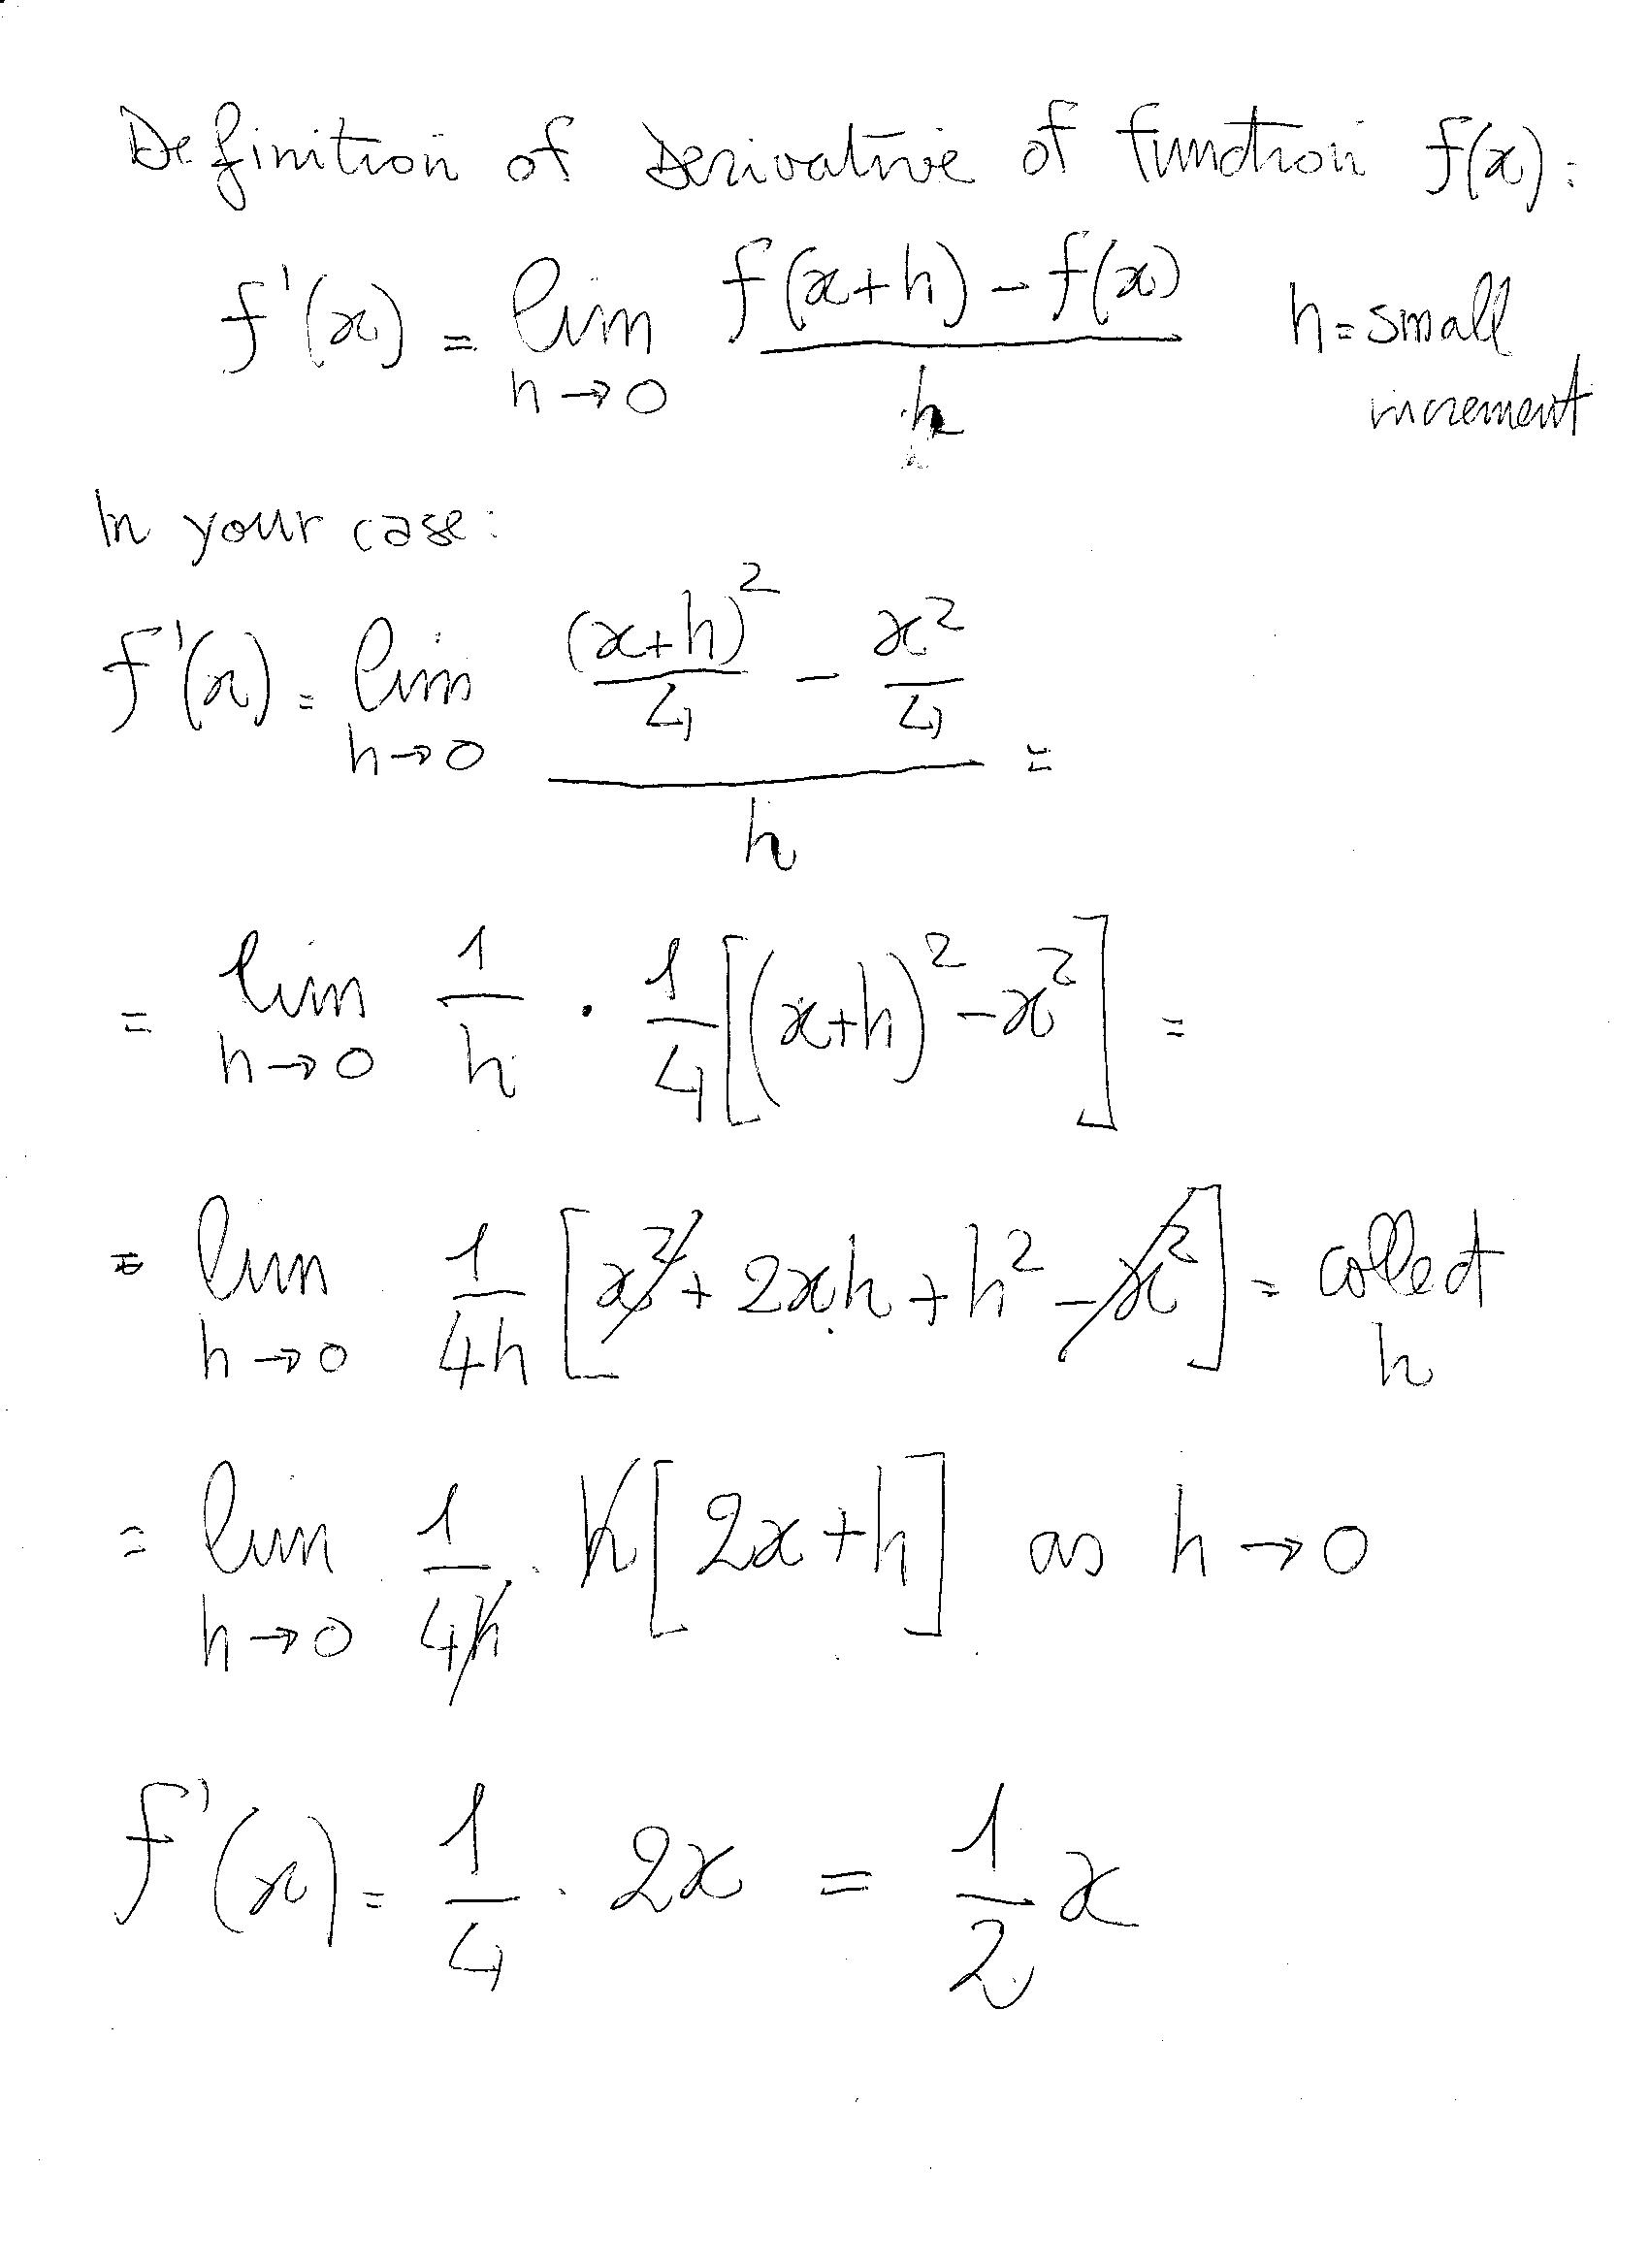 Definition of Derivative of function f(x):
f'(x) = lim h→0 (f(x+h) - f(x)) / h h = small increment
In your case:
f'(x) = lim h→0 ((x+h)²/4 - x²/4) / h =
= lim h→0 1/h · 1/4 [(x+h)² - x²] =
= lim h→0 1/4h [x² + 2xh + h² - x²] = collect h
= lim h→0 1/4h · h[2x+h] as h→0
f'(x) = 1/4 · 2x = 1/2 x